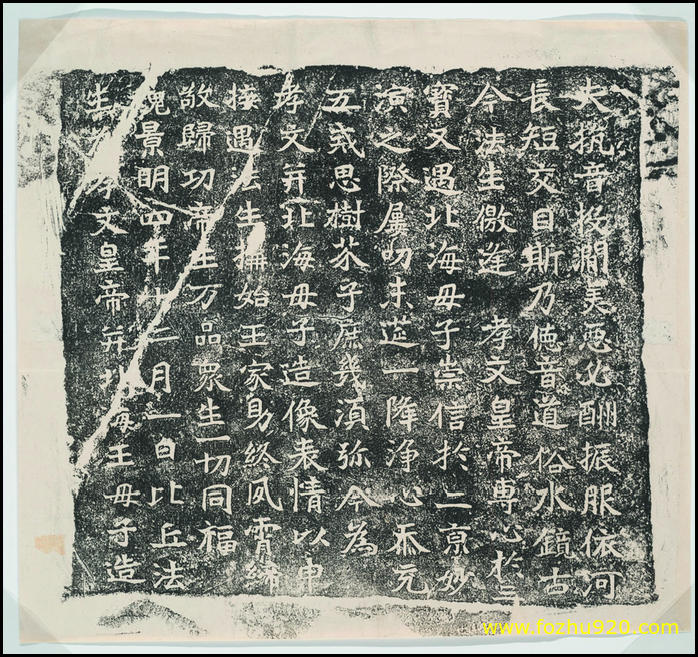 夫抗音投澗美惡必酬振服依河
長短交目斯乃德音道俗水鏡古
今法生僥逢 孝文皇帝專心於三
寶又遇北海母子崇信於二京妙
演之際屢叨末筵一降淨心忝充
五戒思樹芥子庶幾須弥今為
孝文并北海母子造像表情以申
接遇法生構始王家助終夙霄締
敬歸功帝主万品眾生一切同福
魏景明四年十二月一日比丘法
生為孝文皇帝并北海王母子造
www.fozhu920.com